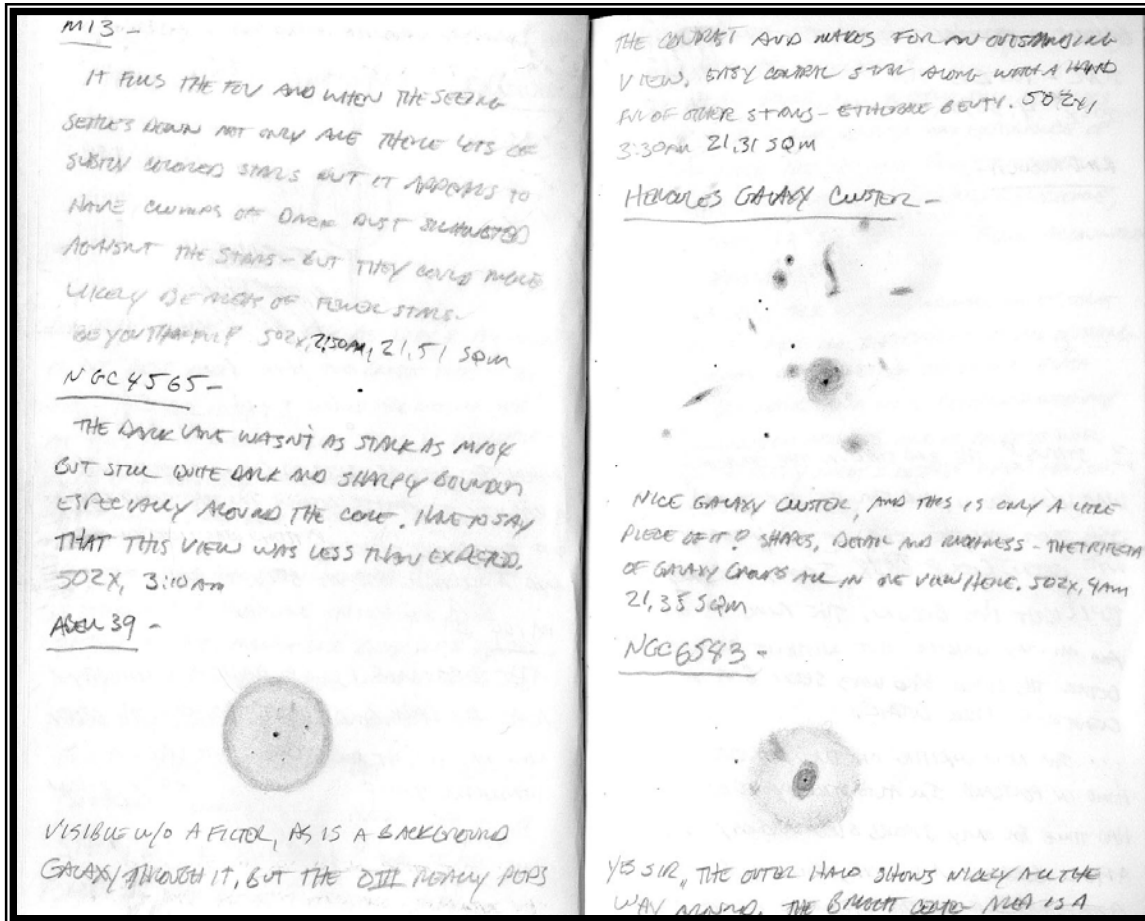 M13 -
IT FILLS THE FOV AND WHEN THE SEEING
SETTLES DOWN NOT ONLY ARE THERE LOTS OF
COLORED STARS BUT IT APPEARS TO
HAVE CLUMPS OF DARK DUST SILHOUETTED
AGAINST THE STARS - BUT THEY COULD MORE
LIKELY BE AREAS OF FEWER STARS.
502X, 2:50AM, 21.51 SQM
NGC 4565 -
THE DARK LANE WASN'T AS STARK AS M104
BUT STILL QUITE DARK AND SHARPLY BOUNDED
ESPECIALLY AROUND THE CORE. HAVE TO SAY
THAT THIS VIEW WAS LESS THAN EXPECTED.
502X, 3:10AM
ABELL 39 -
VISIBLE W/O A FILTER, AS IS A BACKGROUND
GALAXY THROUGH IT, BUT THE OIII REALLY POPS
THE CONTRAST AND MAKES FOR AN OUTSTANDING
VIEW. EASY CENTRAL STAR ALONG WITH A HAND
FUL OF OTHER STARS - BEUTY. 502X,
3:30AM 21.31 SQM
HERCULES GALAXY CLUSTER -
NICE GALAXY CLUSTER, AND THIS IS ONLY A LITTLE
PIECE OF IT! SHAPES, DETAIL AND RICHNESS - THE TRIFECTA
OF GALAXY GROUPS ALL IN ONE VIEW HERE. 502X, 4AM
21.35 SQM
NGC 6543 -
YES SIR, THE OUTER HALO SHOWS NICELY ALL THE
WAY AROUND. THE BRIGHT CENTER AREA IS A